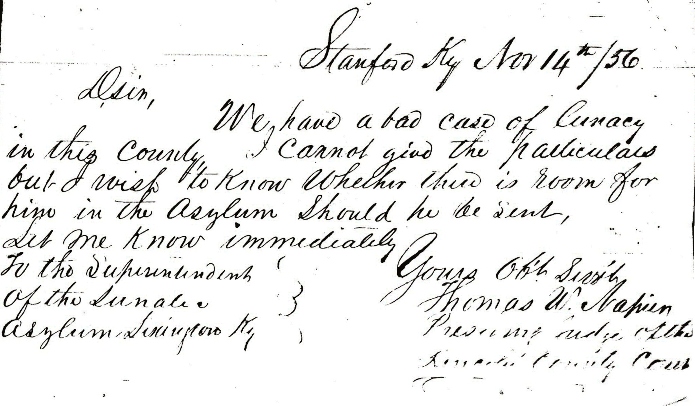 Stanford Ky Nov 14th/56
Dsir,
We have a bad case of lunacy
in this County, I cannot give the particulars
but I wish to Know Whether there is room for
him in the Asylum Should he be Sent,
Let me Know immediately
To the Superintendent
Of the Lunatic
Asylum Lexington Ky
Yours Obt. Servt.
Thomas W. Napier
Presiding Judge of the
Lincoln County Court